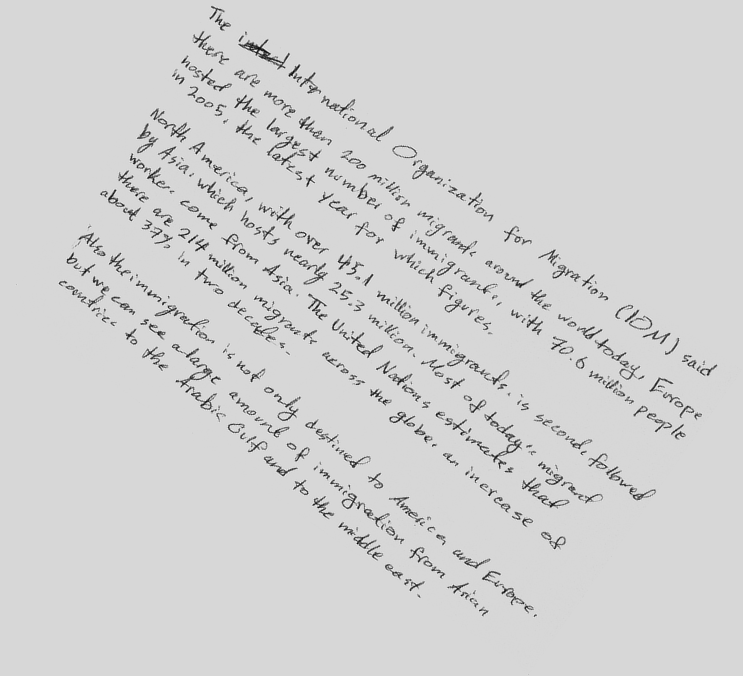 The International Organization for Migration (IOM) said
there are more than 200 million migrants around the world today, Europe
hosted the largest number of immigrants, with 70.6 million people
in 2005, the latest year for which figures.
North America, with over 45.1 million immigrants, is second, followed
by Asia, which hosts nearly 25.3 million. Most of today's migrant
workers come from Asia. The United Nations estimates that
there are 214 million migrants across the globe, an increase of
about 37% in two decades.
Also the immigration is not only destined to America and Europe,
but we can see a large amount of immigration from Asian
countries to the Arabic Gulf and to the middle east.